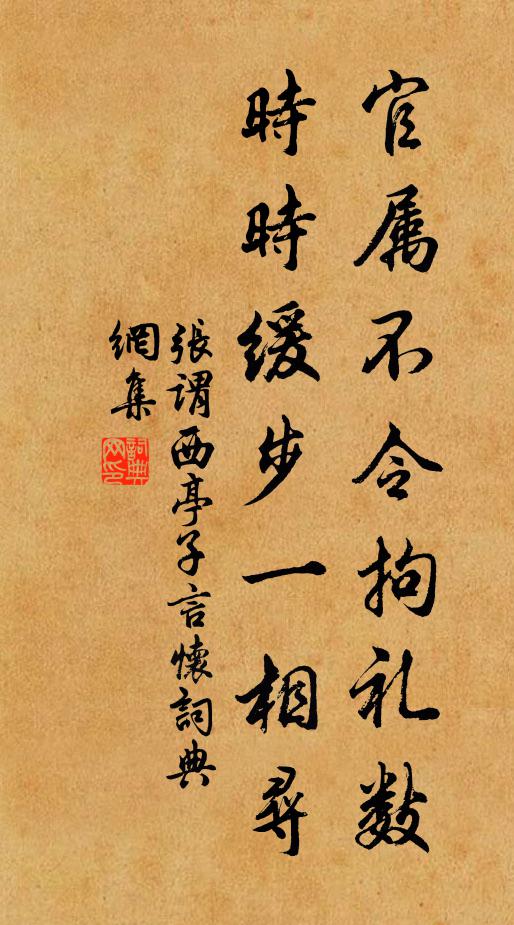 官属不令拘礼数
時時緩步一相尋
張謂西亭子言懷詞典
網集
詞典
网印